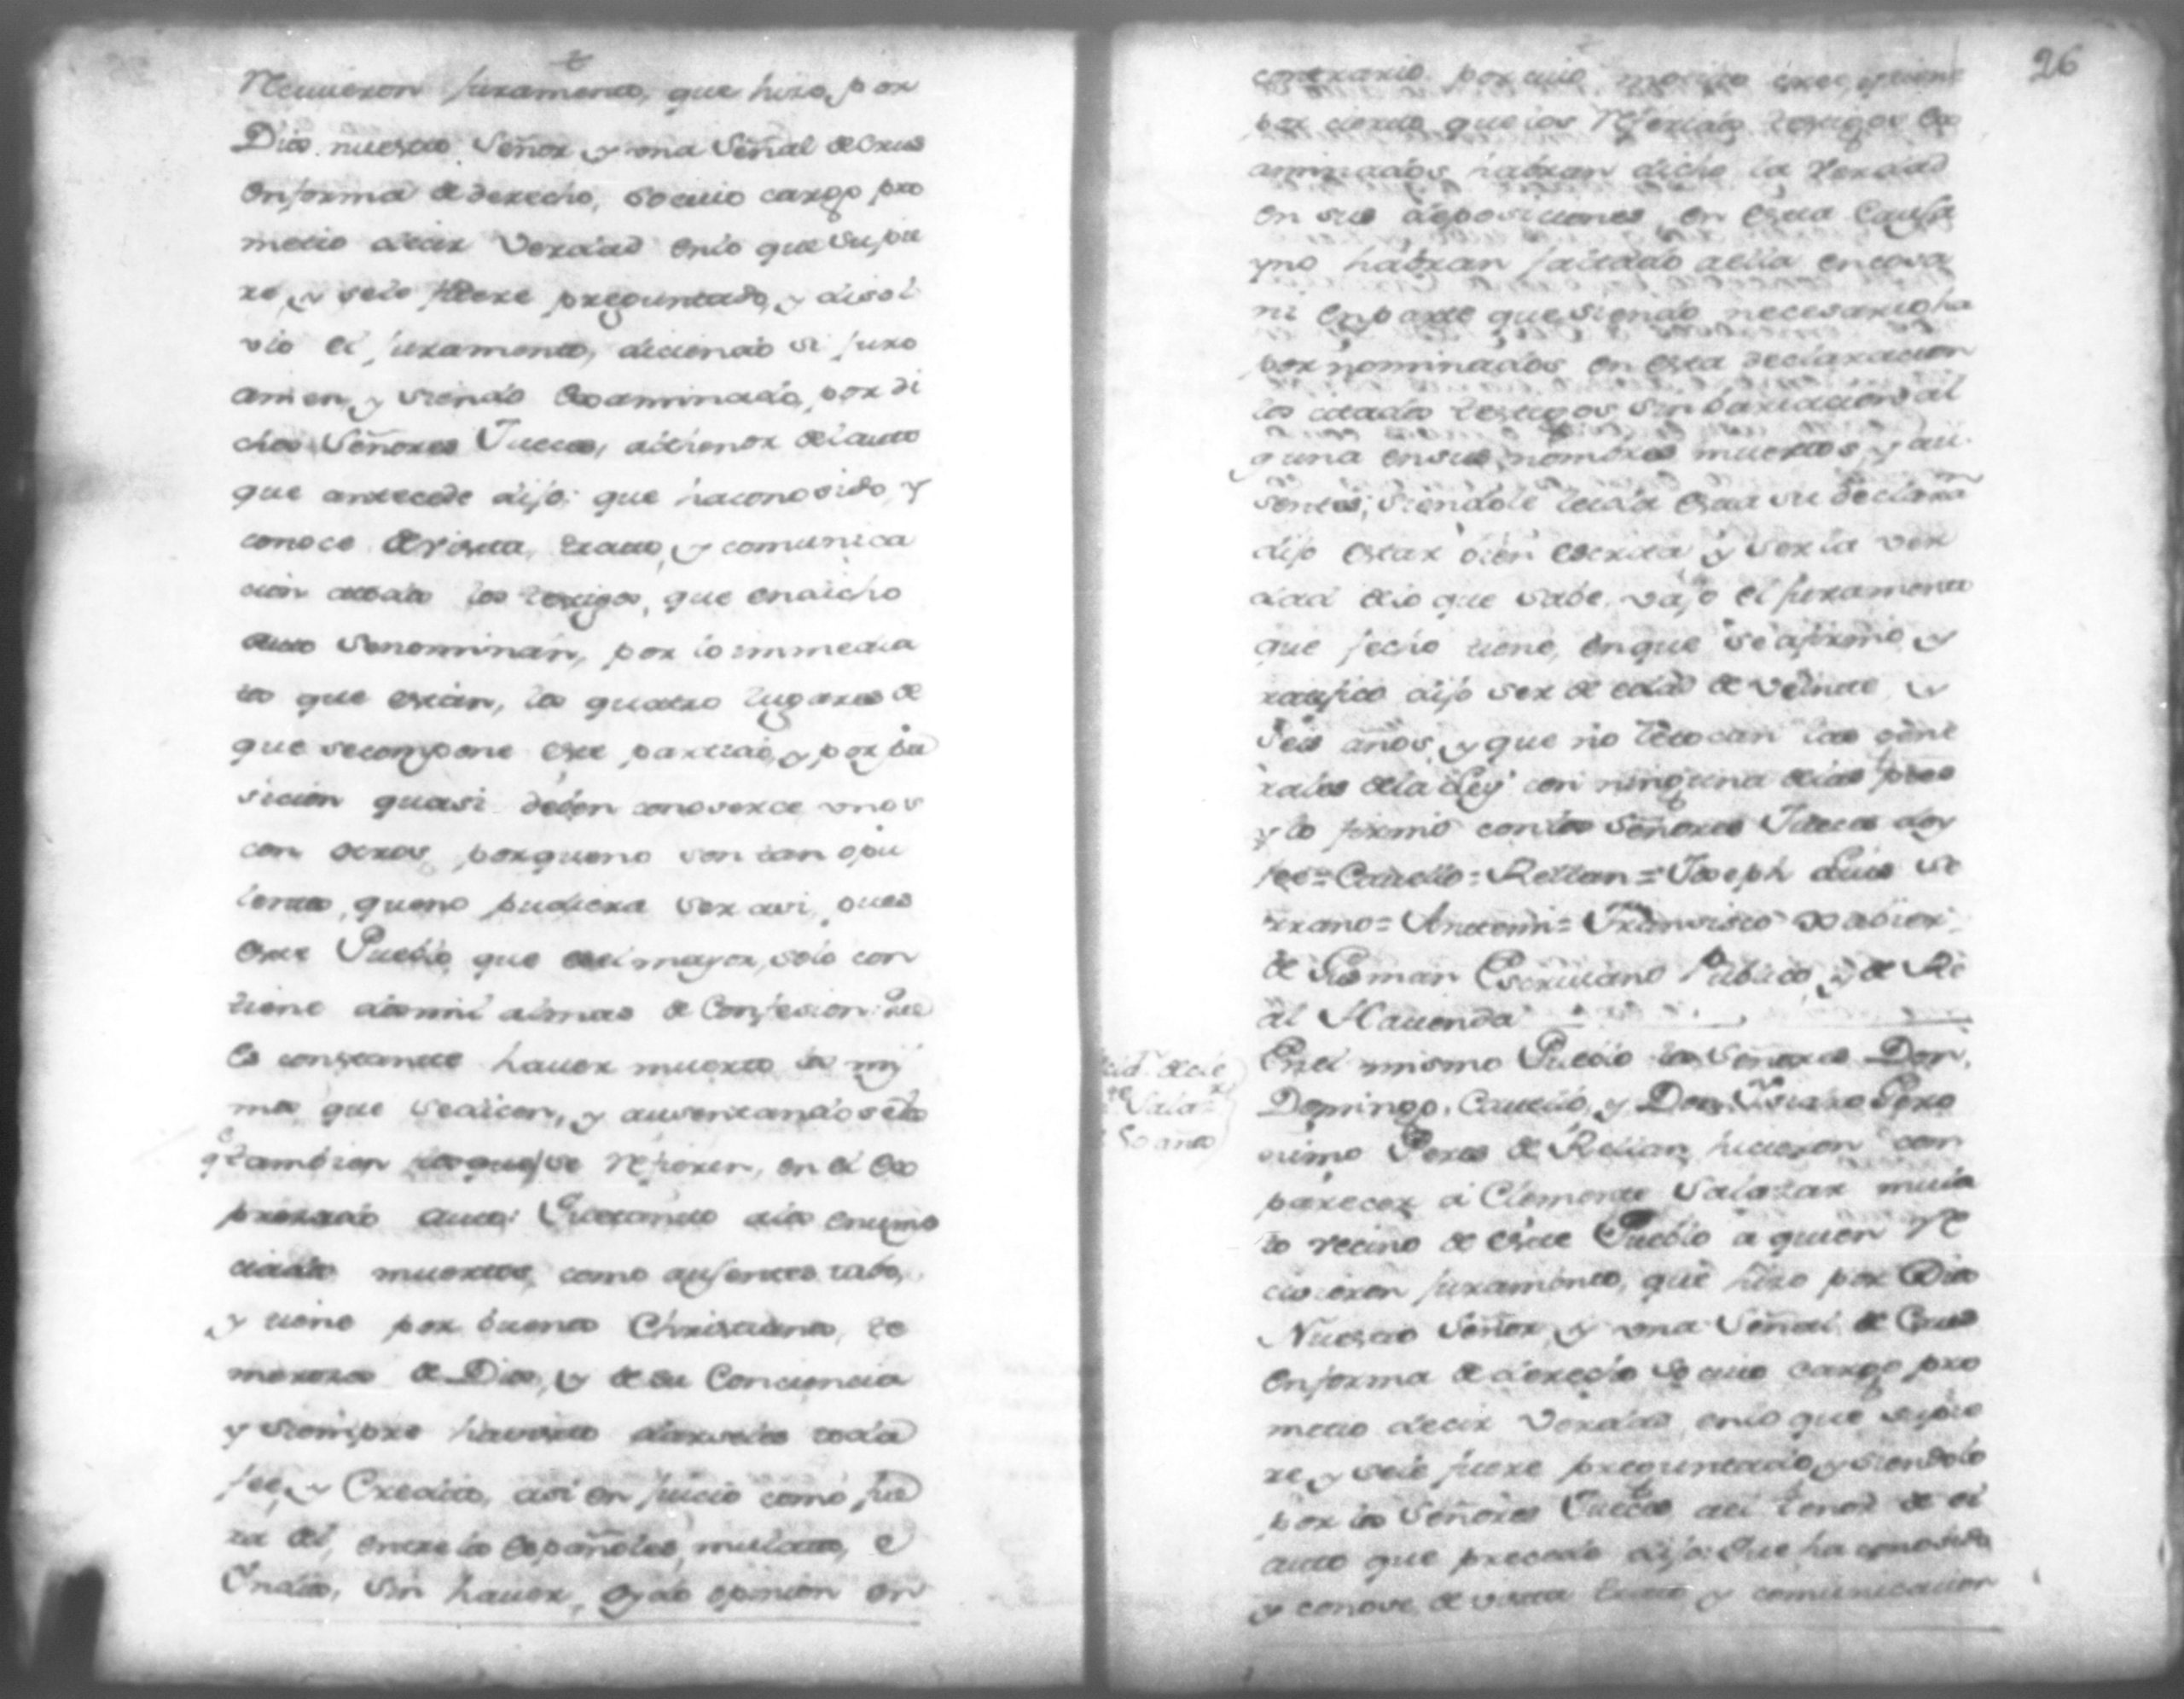 Recivieron juramento, que hizo, por
Dios nuestro Señor y una Señal de Crus
en forma de derecho, so cuio cargo pro
metio decir Verdad en lo que supie
re, y se le fuere preguntado, y disol
vio el juramento, diciendo si juro
amen, y siendo examinado, por di
chos Señores Jueces, al thenor del auto
que antecede dijo: que ha conosido, y
conoce de vista, trato, y comunica
cion a todos los testigos, que en dicho
auto se nominan, por lo immedia
to que estan, los quatro lugares de
que se compone este partido, y por su
sicion quasi deben conoserce unos
con otros, porque no son tan opu
lentos, que no pudiera ser asi, pues
este Pueblo, que es el mayor, solo con
tiene dos mil almas de Confesion: Que
es constante haver muerto los mis
mos que se dicen, y ausentandose los
q.e tambien se refieren, en el ex
presado auto: Que tanto a los enunc
ciados muertos, como ausentes tubo,
y tiene por buenos Christianos, te
merosos de Dios, y de su Conciencia
y siempre ha visto darseles toda
fee, y Credito, asi en juicio como fue
ra del, entre los españoles, mulatos, e
Indios, sin haver, oydo opinion en
26
contrario por cuio motivo cree, y tiene
por cierto que los Referidos testigos ex
aminados, habran dicho la Verdad
en sus deposiciones, en esta Causa
y no habran faltado a ella en cosa
ni en parte que siendo necesario ha
por nominados en esta declaracion
los citados testigos, sin bariacion al
guna en sus nombres muertos, y au
sentes; siendole leida esta su declara.on
dijo estar bien escrita, y ser la ver
dad de lo que sabe, vajo el juramento
que fecho tiene, en que se afirmo, y
ratifico dijo ser de edad de veinte, y
seis años, y que no le tocan las gene
rales de la Ley con ninguna de las ptes
y lo firmo con los Señores Jueces doy
fee = Cavello = Rellan = Joseph Luis Se
rrano = Antemi = Francisco Xabier
de Guzman Escrivano Publico, y de Re
al Hacienda
En el mismo Pueblo los Señores Don,
Domingo, Cavello, y Don, Isidro Gero
nimo Peres de Rellan, hicieron com
parecer a Clemente Salazar mula
to vecino de este Pueblo a quien Re
civieron juramento, que hizo por Dios
Nuestro Señor, y una Señal de Crus
en forma de derecho so cuio cargo pro
metio decir Verdad, en lo que supie
re, y se le fuere preguntado, y siendolo
por los Señores Jueces al tenor de el
auto que precede dijo: Que ha conosido
y conose, de vista trato y comunicacion
de Cle
Salaz.r
50 años